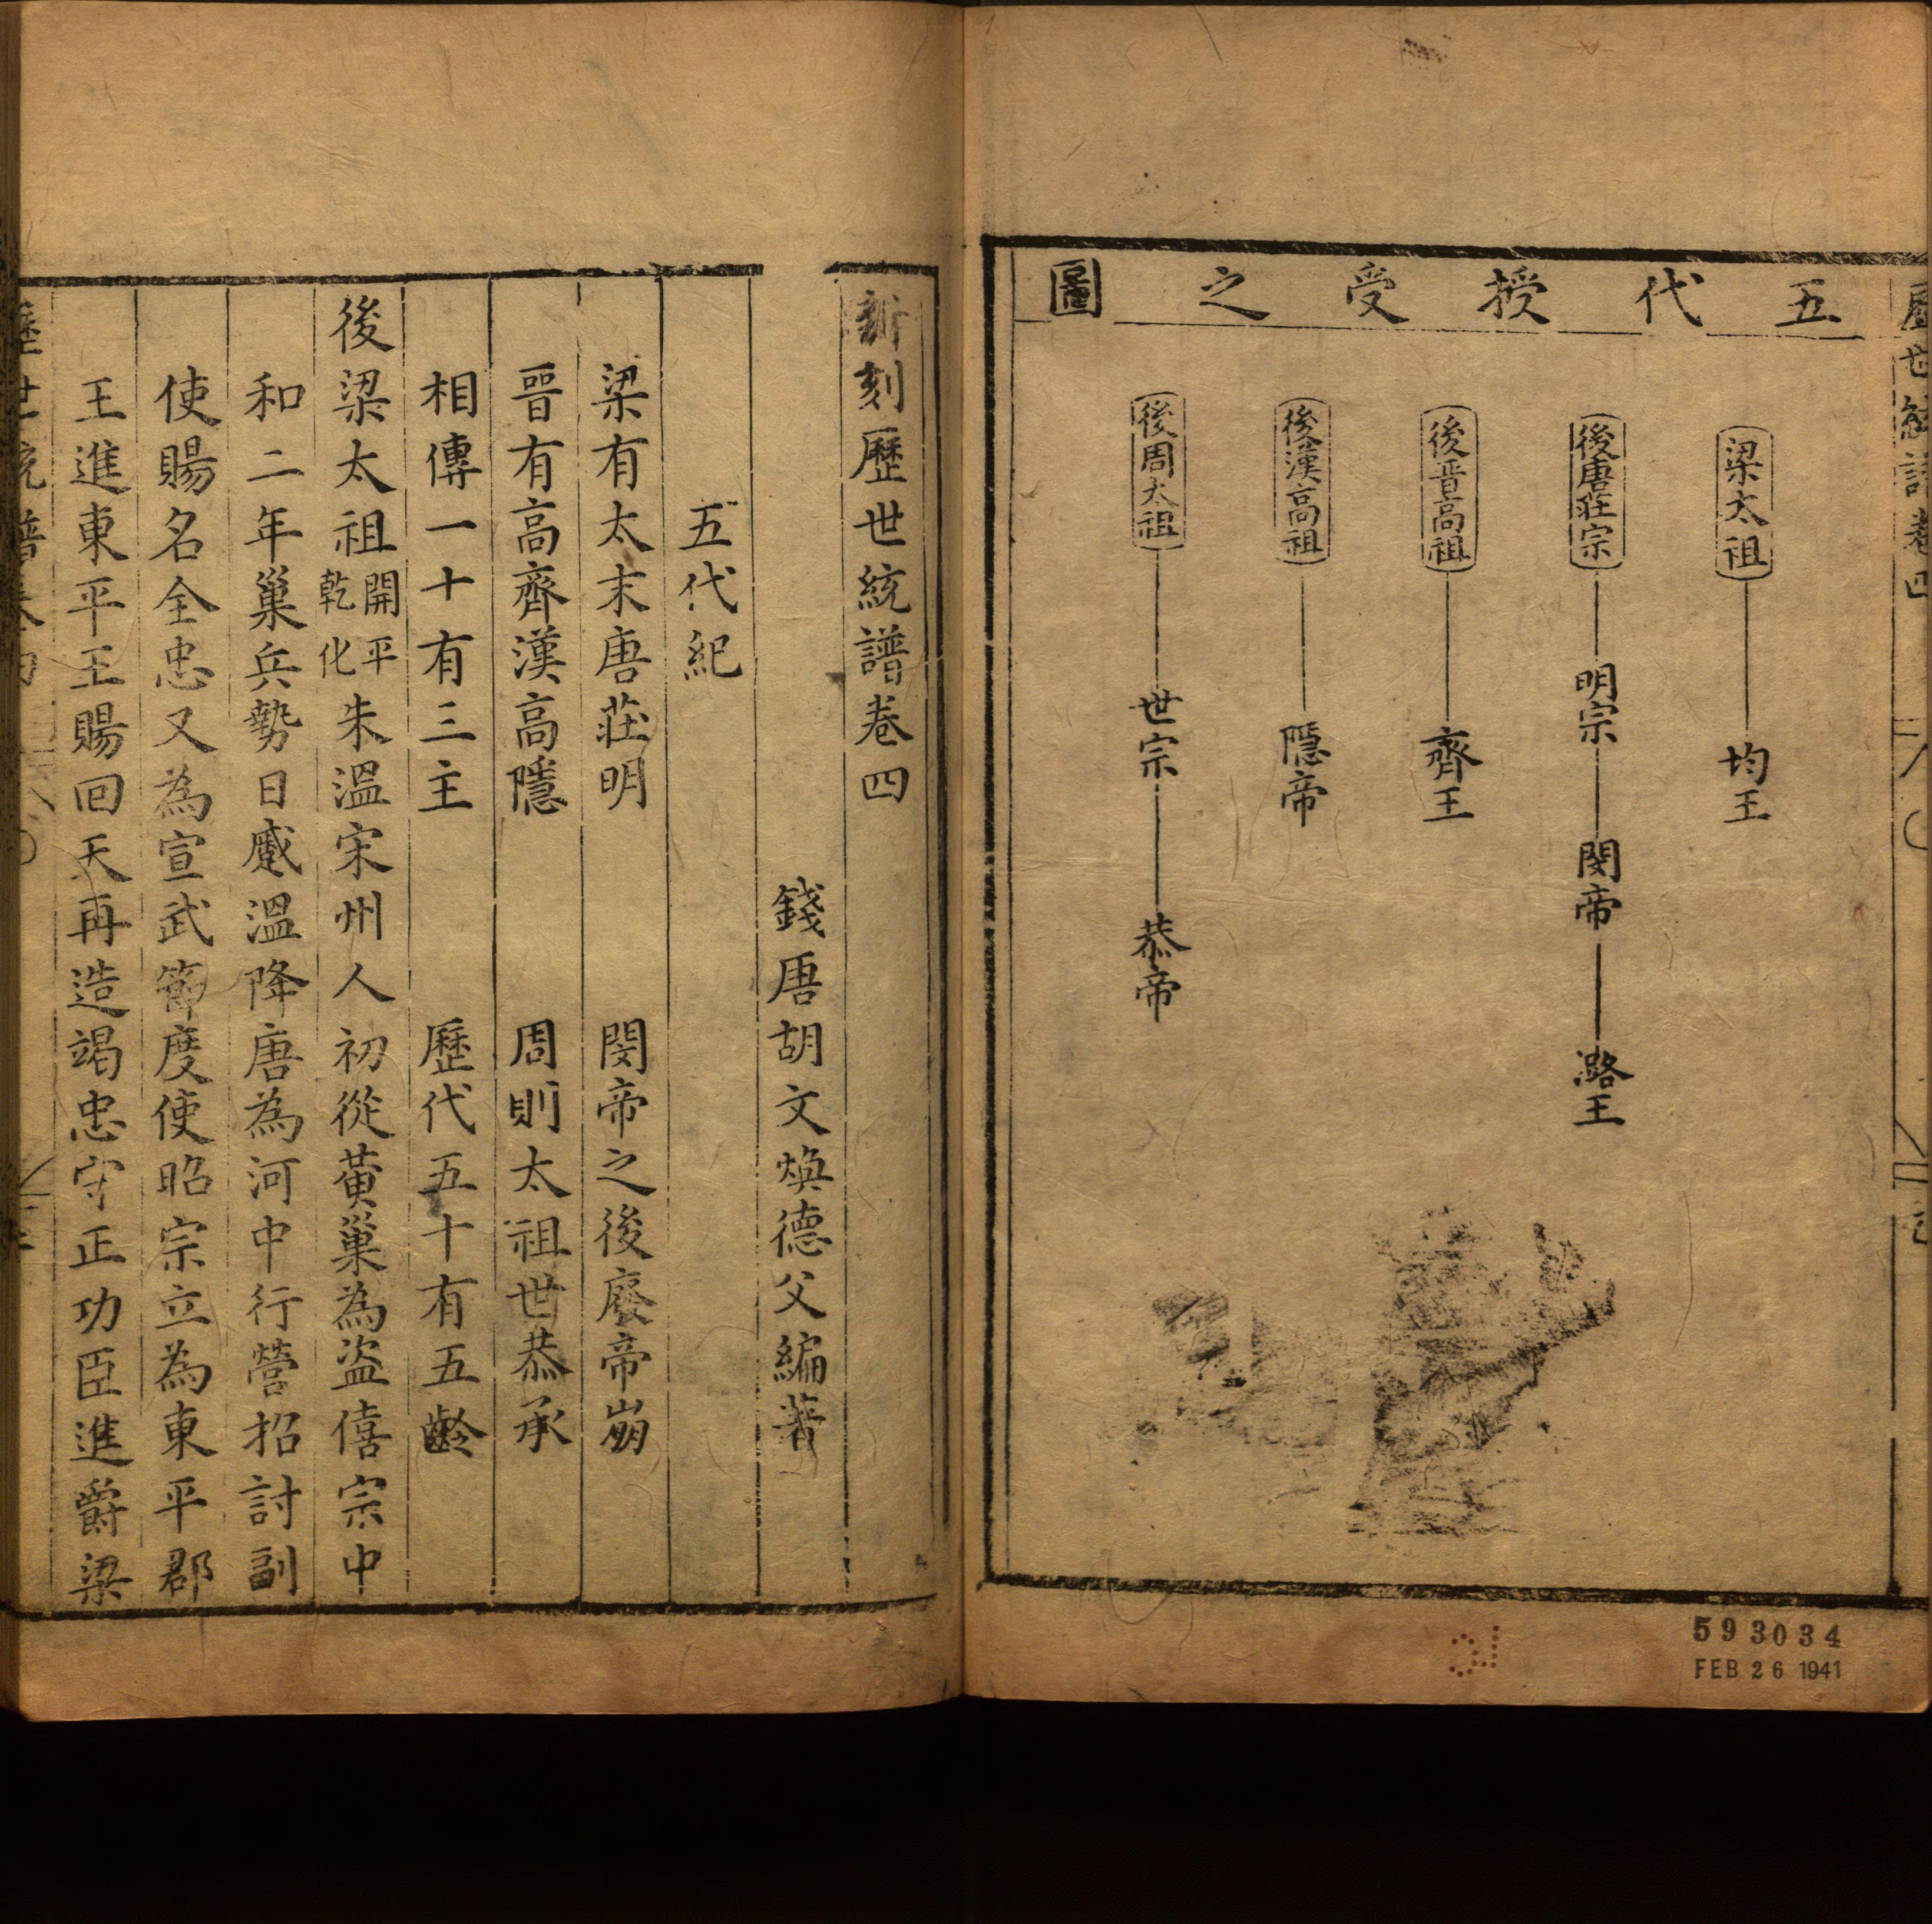 五代授受之圖
梁太祖 均王
後唐莊宗 明宗 閔帝 潞王
後晋高祖 齊王
後漢高祖 隱帝
後周太祖 世宗 恭帝
593034
FEB 26 1941
新刻歷世統譜卷四
錢唐胡文煥德父編著
五代紀
梁有太末唐莊明 閔帝之後廢帝崩
晋有高齊漢高隱 周則太祖世恭承
相傳一十有三主 歷代五十有五齡
後梁太祖開平乾化朱溫宋州人初從黃巢為盜僖宗中
和二年巢兵勢日蹙溫降唐為河中行營招討副
使賜名全忠又為宣武節度使昭宗立為東平郡
王進東平王賜回天再造竭忠守正功臣進爵梁